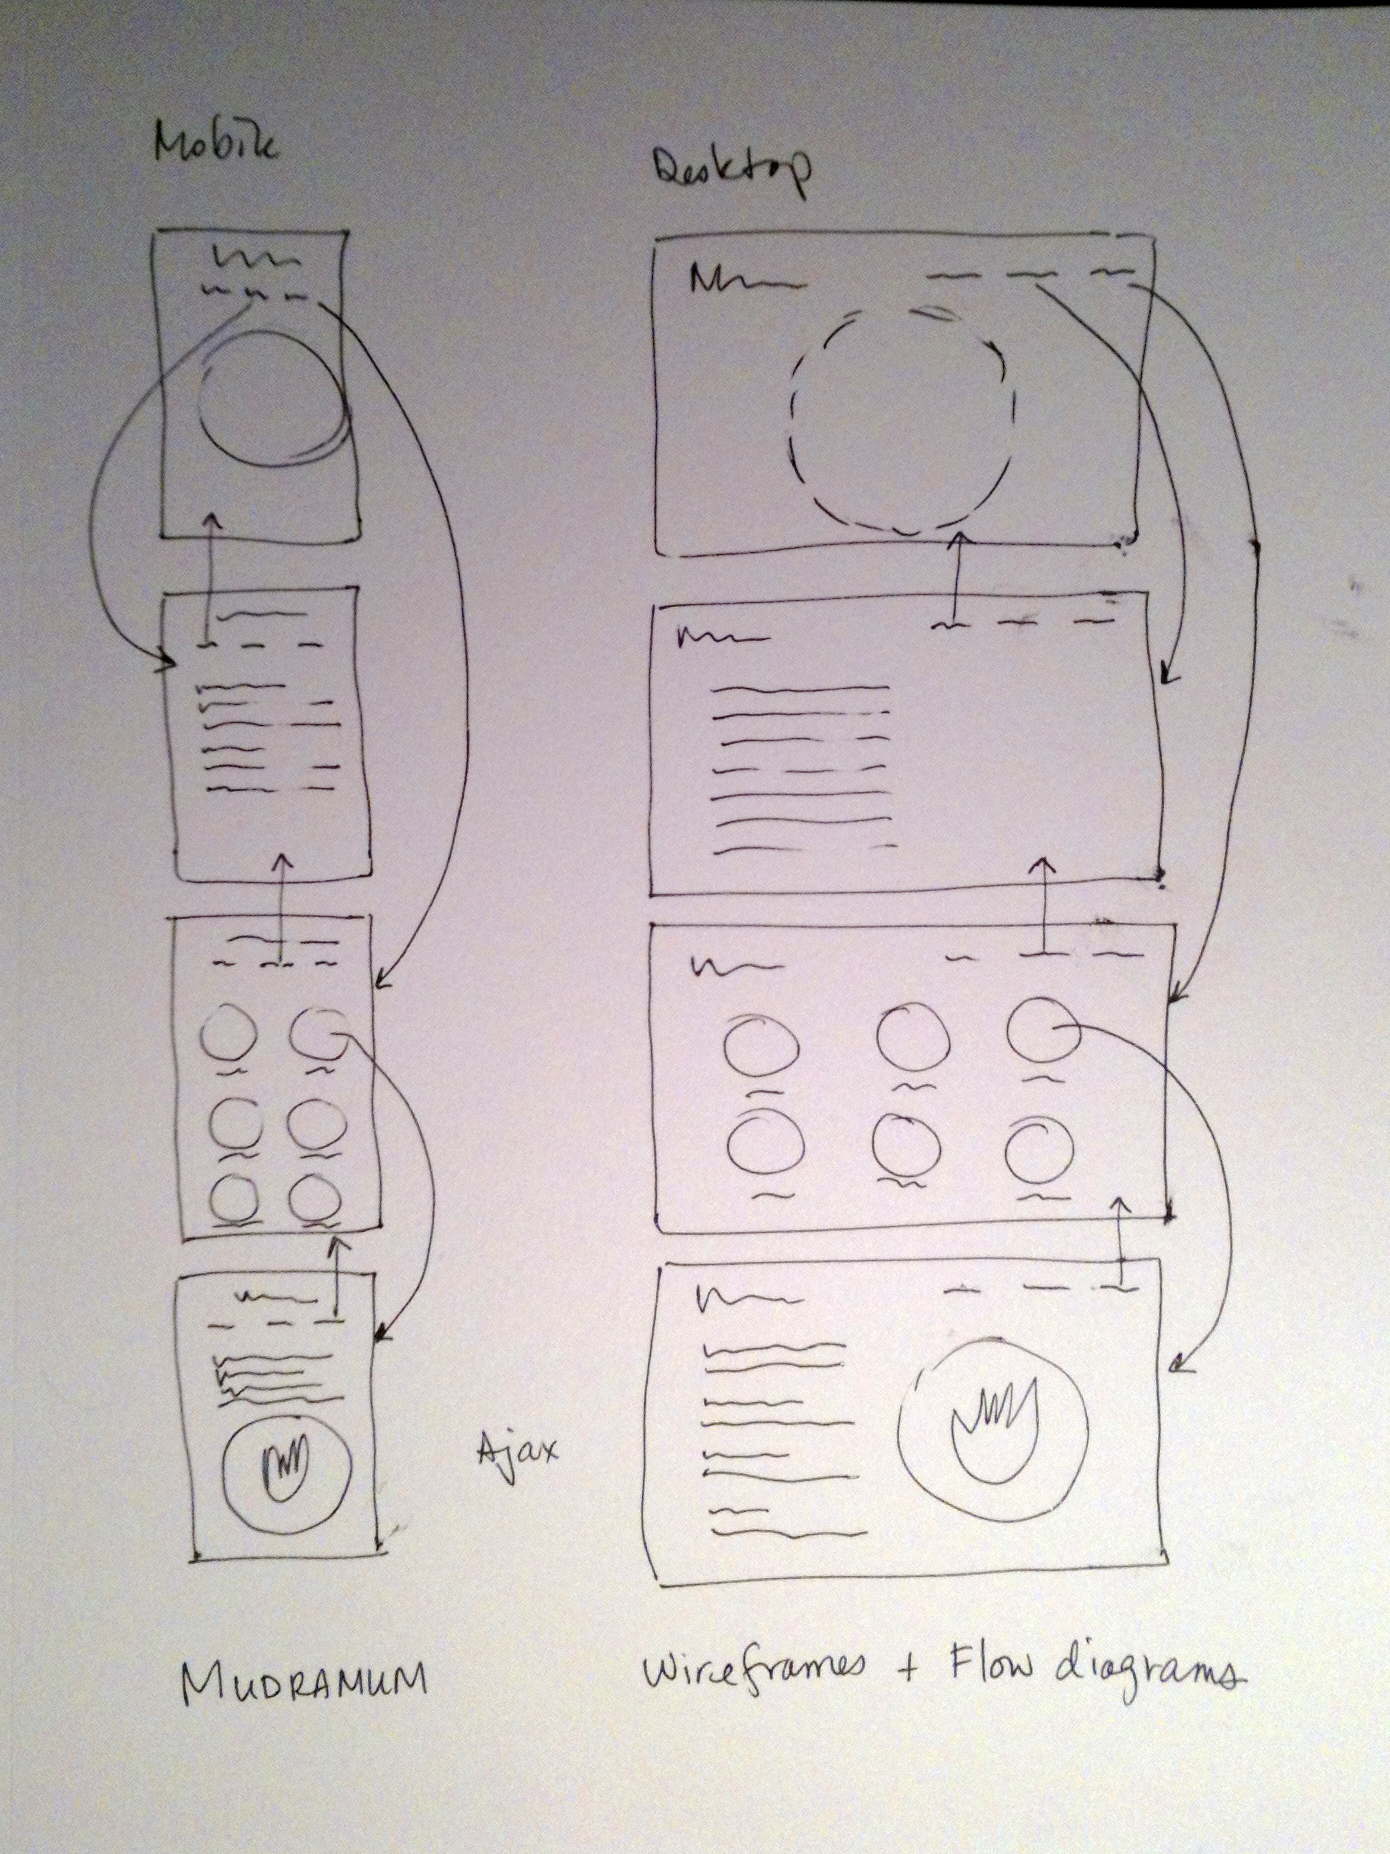 Mobile
Desktop
Ajax
MUDRAMUM
Wireframes + Flow diagrams